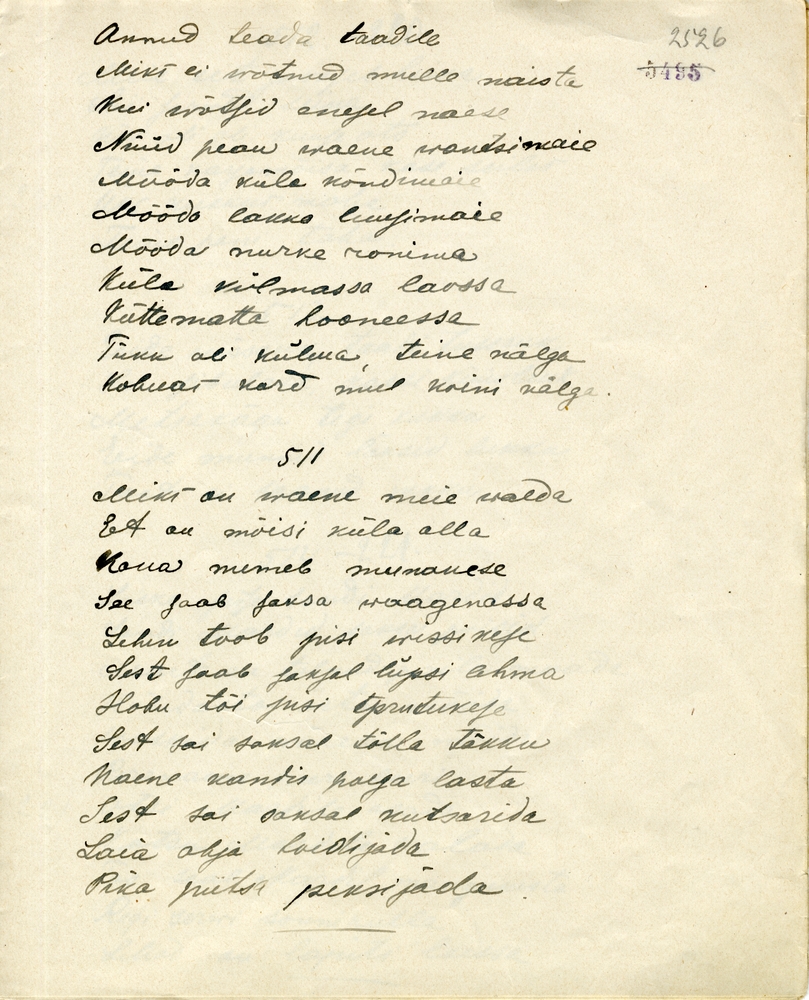 Annud seada taadile
2526
5495
Miks ei wõtnud mulle naista
Kui wõtsid enesel naese
Nüüd pean waene wantsimaie
Mööda küla kõndimaie
Mööda lakka
Mööda nurke ronima
Küla külmassa laossa
Küttematta hooneessa
Tükk oli külma, teine nälga
Kolmat kord mul koini nälga.
511
Miks on waene meie walda
Et on mõisi küla alla
Kana muneb munakese
See saab saksa waagenassa
Lehm toob pisi wissikese
Sest saab saksal lüpsi lehma
Hobu tõi pisi tprutukese
Sest sai saksal tõlla täkku
Naene kandis poega lasta
Sest sai saksal kutsarida
Laia ohja hoidijada
Pika piitsa peksijada